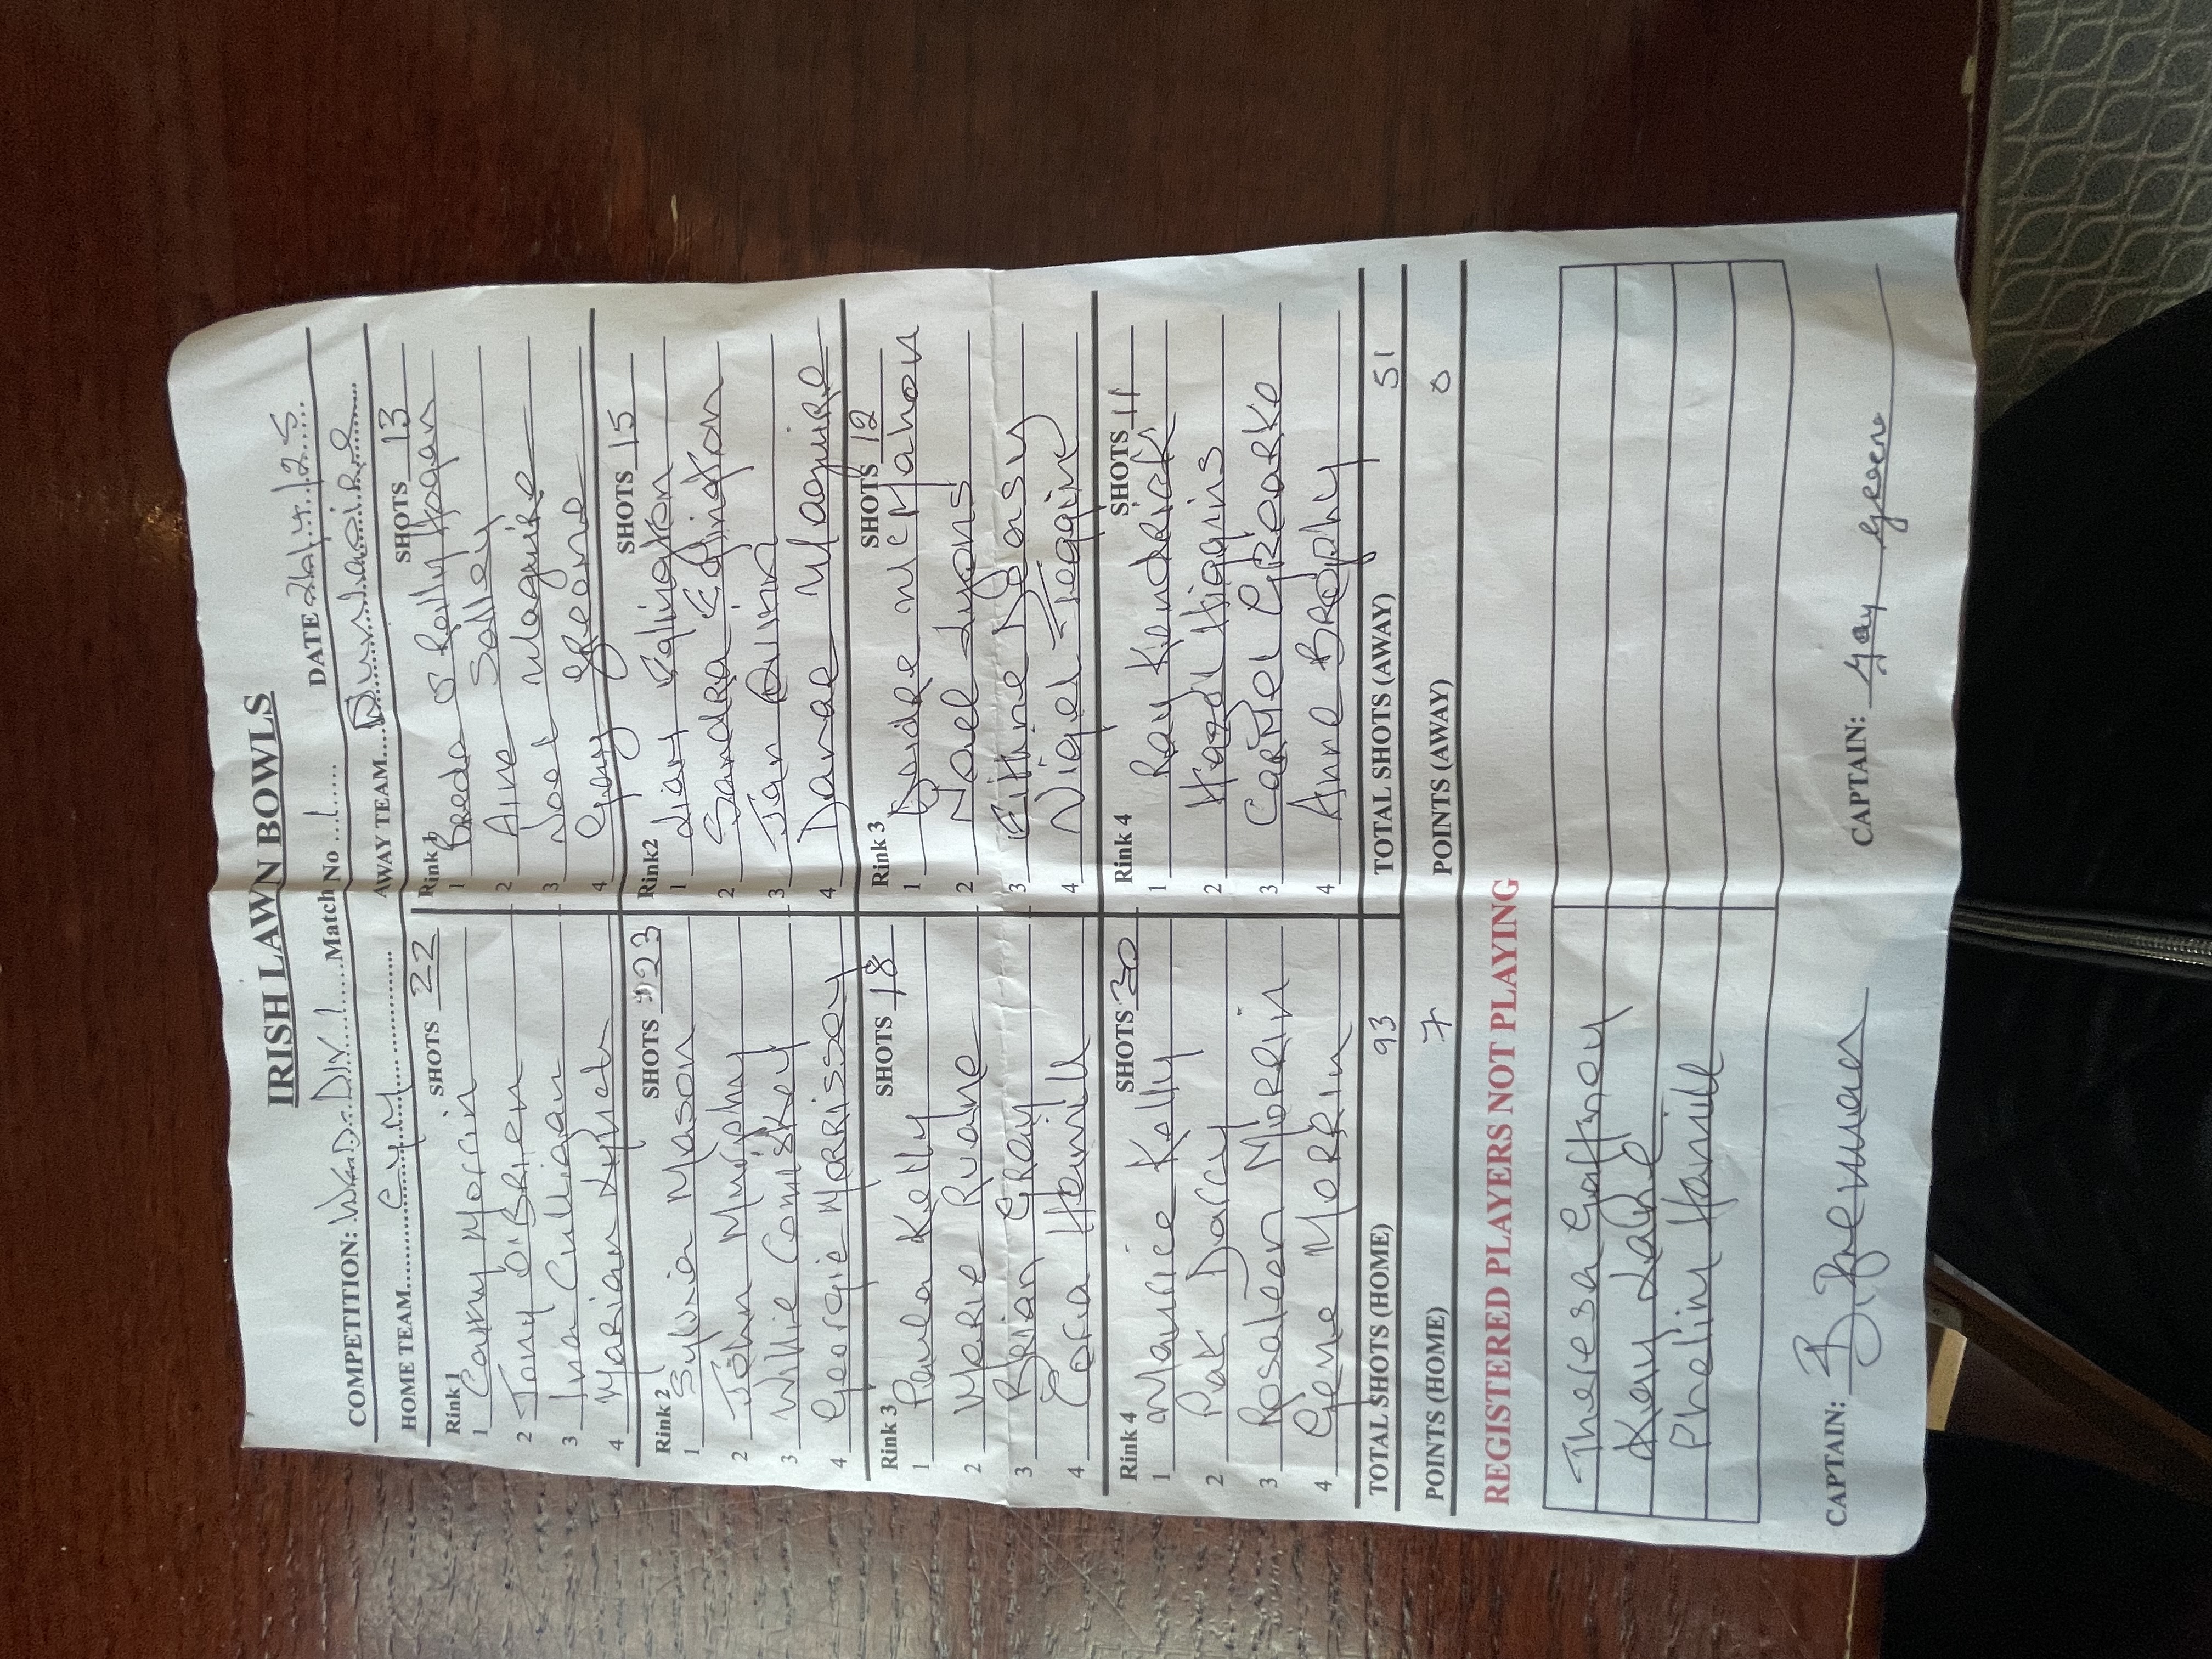 IRISH LAWN BOWLS
COMPETITION: Wed. Div 1 Match No 1 DATE
HOME TEAM C.Y.M AWAY TEAM Dunlaoire
Rink 1 SHOTS 22 Rink 1 SHOTS 13
1 Morrin 1 Breda O Reilly Hogan
2 Tony O'Brien 2 Aine
3 Ina Culligan 3 Noel Maguire
4 Marian Lynch 4 Gay Greene
Rink 2 SHOTS 23 Rink2 SHOTS 15
1 Sylvia Mason 1 Liam Edlington
2 John Murphy 2 Sandra Edlington
3 Willie Comiskey 3 Jan Quinn
4 Georgie Morrissey 4 Danae Maguire
Rink 3 SHOTS 18 Rink 3 SHOTS 12
1 Paula Kelly 1 Deidre McMahon
2 Marie Ruane 2 Noel Lyons
3 Brian Gray 3 Eithne Deasy
4 Cora Hamill 4 Nigel Teggin
Rink 4 SHOTS 30 Rink 4 SHOTS 11
1 Maurice Kelly 1 Ray Kendrick
2 Pat Darcy 2 Hazel Higgins
3 Rosaleen Morrin 3 Carmel
4 Gene Morrin 4 Anne Brophy
TOTAL SHOTS (HOME) 93 TOTAL SHOTS (AWAY) 51
POINTS (HOME) 7 POINTS (AWAY) 0
REGISTERED PLAYERS NOT PLAYING
Theresa Gaffney
Kay
Phelim Hamill
CAPTAIN: CAPTAIN: Gay Greene